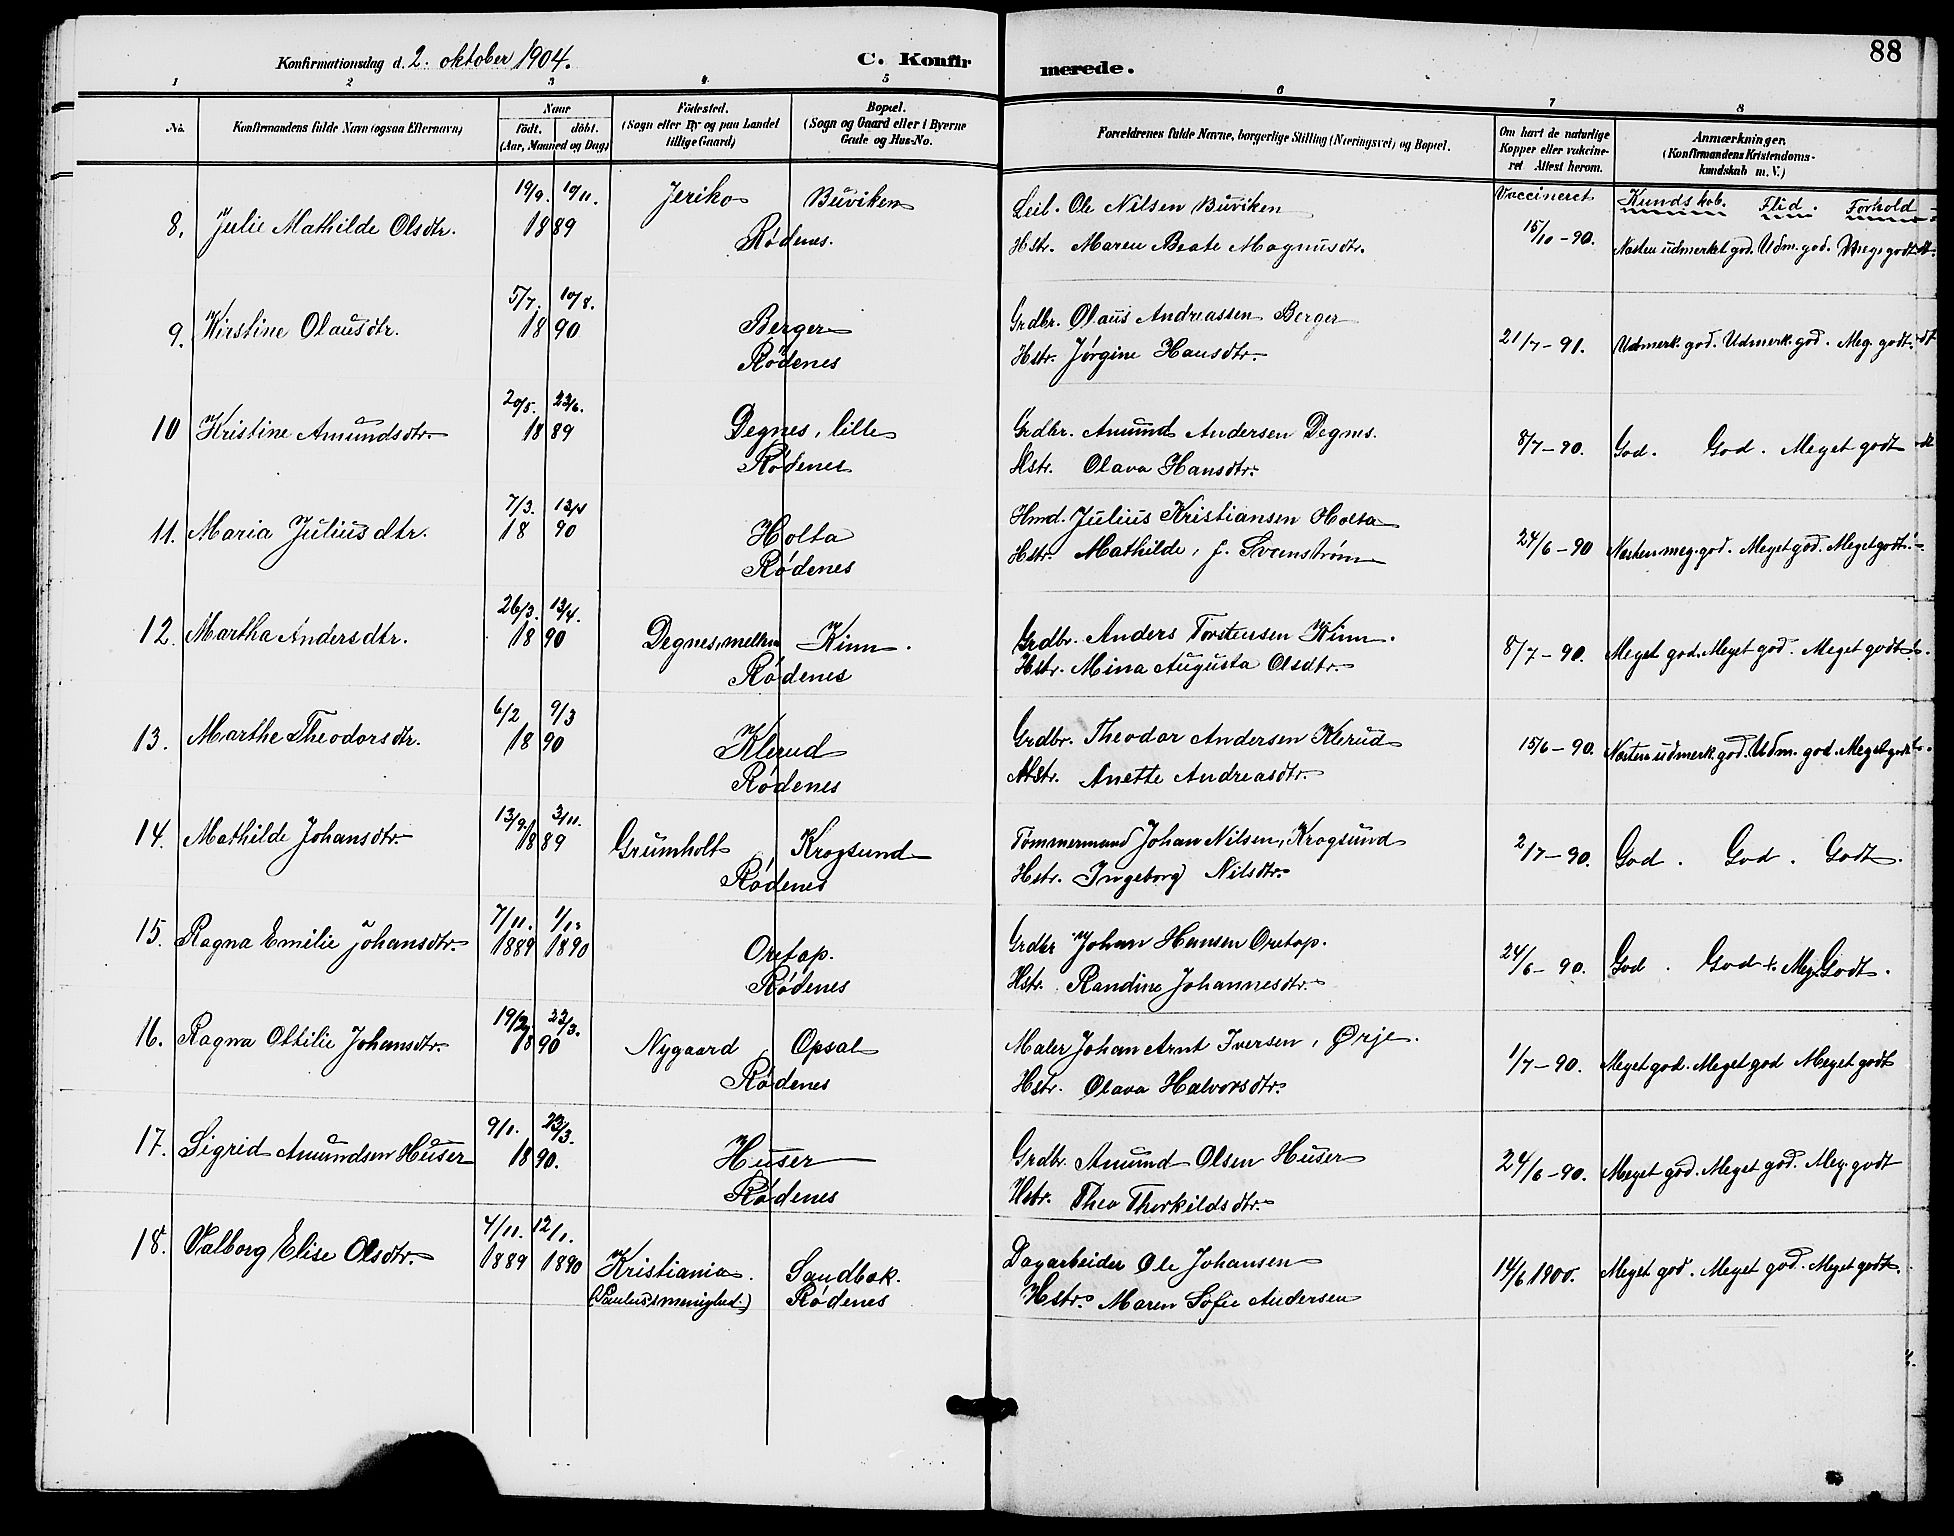 88
Konfirmationsdag d. 2. oktober 1904.
C. Konfirmerede.
1 2 3 4 5 6 7 8
No.
Konfirmandens fulde Navn (ogsaa Efternavn)
Naar
födt. döbt.
(Aar, Maaned og Dag)
Födested.
(Sogn eller By og paa Landet
tillige Gaard)
Bopæl.
(Sogn og Gaard eller i Byerne
Gade og Hus-No.
Forældrenes fulde Navne, borgerlige Stilling (Næringsvei) og Bopæl.
Om havt de naturlige
Kopper eller vakcine-
ret Attest herom.
Anmærkninger.
(Konfirmandens Kristendoms-
kundskab m. V.)
Vaccineret Kundskab. Flid. Forhold
19/9. 10/11. Jeriko Buviken Leil. Ole Nilsen Buviken
8. Julie Mathilde Olsdtr. 1889 Rødenes. Hstr. Maren Beate Magnusdtr. 15/10-90. Næsten udmerket god. Udm. god. Meg. godt
5/7. 10/8. Grdbr. Olaus Andreassen Berger
9. Kirstine Olausdtr. 1890 Berger 21/7-91. Udmerk. god. Udmerk. god. Meg. godt.
Rødenes Hstr. Jørgine Hansdtr.
20/5. 23/6.
10 Kristine Amundsdtr. 1889 Degnes, lille Grdbr. Amund Andersen Degnes. 8/7-90. God. God. Meget godt
Rødenes Hstr. Olava Hansdtr.
7/3. 13/4 Hmd. Julius Kristiansen Holta
11. Maria Juliusdtr. 1890 Holta 24/6-90 Næsten meg. god. Meget god. Meget godt.
Rødenes Hstr. Mathilde, f. Svenstrøm
26/3. 13/4.
12. Martha Andersdtr. 1890 Degnes, mellem Kinn. Grdbr. Anders Torstensen Kinn. 8/7-90. Meget god. Meget god. Meget godt.
Rødenes Hstr. Mina Augusta Olsdtr.
6/2 9/3
13. Marthe Theodorsdtr. 1890 Klerud Grdbr. Theodor Andersen Klerud 15/6-90. Næsten udmerk. god. Udm. god. Meget godt
Rødenes Hstr. Anette Andreasdtr.
13/9. 3/11.
14. Mathilde Johansdtr. 1889 Grumholt Krogsund Tømmermand Johan Nilsen, Krogsund 2/7-90. God. God. Godt.
Rødenes Hstr. Ingeborg Nilsdtr.
7/11. 1/1.
15. Ragna Emilie Johansdtr. 1889 1890 Oretop. Grdbr Johan Hansen Oretop. 24/6-90. God. God. Meg. Godt.
Rødenes Hstr. Randine Johannesdtr.
23/3.
16. Ragna Ottilie Johansdtr. 1890 Nygaard Opsal Maler Johan Arnt Iversen, Ørje. 1/7-90. Meget god. Meget god Meget godt
Rødenes Hstr. Olava Halvorsdtr.
9/1. 23/3.
17. Sigrid Amundsen Huser 1890. Huser Grdbr. Amund Olsen Huser 24/6-90. Meget god. Meget god. Meg. godt
Rødenes Hstr. Thea Thorkildsdtr.
4/11. 12/1.
18. Valborg Elise Olsdtr. 1889 1890 Kristiania. Sandbæk. Dagarbeider Ole Johansen 14/6 1900. Meget god. Meget god. Meget godt.
(Paulus's menighed.) Rødenes Hstr. Maren Sofie Andersen